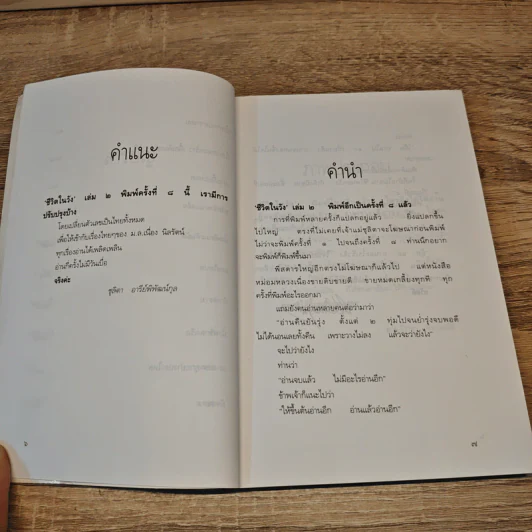 คำแนะ
'ชีวิตในวัง' เล่ม ๒ พิมพ์ครั้งที่ ๘ นี้ เรามีการ
ปรับปรุงบ้าง
โดยเปลี่ยนตัวเลขเป็นไทยทั้งหมด
เพื่อให้เข้ากับเรื่องไทยๆของ ม.ล.เนื่อง นิลรัตน์
ทุกเรื่องอ่านได้เพลิดเพลิน
อ่านกี่ครั้งไม่มีวันเบื่อ
จริงค่ะ
ชุลิตา อารีย์พิพัฒน์กุล
๖
คำนำ
'ชีวิตในวัง' เล่ม ๒ พิมพ์อีกเป็นครั้งที่ ๘ แล้ว
การที่พิมพ์หลายครั้งก็แปลกอยู่แล้ว ยิ่งแปลกขึ้น
ไปใหญ่ ตรงที่ไม่เคยที่เจ้าแม่ชุลิตาจะโฆษณาก่อนพิมพ์
ไม่ว่าจะพิมพ์ครั้งที่ ๑ ไปจนถึงครั้งที่ ๘ ท่านนึกอยาก
จะพิมพ์ก็พิมพ์ขึ้นมา
พิสดารใหญ่อีกตรงไม่โฆษณาก็แล้วไป แต่หนังสือ
หม่อมหลวงเนื่องขายดิบขายดี ขายหมดเกลี้ยงทุกที ทุก
ครั้งที่พิมพ์อะไรออกมา
แถมยังคนอ่านหลายคนต่อว่ามาว่า
"อ่านคืนยันรุ่ง ตั้งแต่ ๒ ทุ่มไปจนย่ำรุ่งจบพอดี
ไม่ได้นอนเลยทั้งคืน เพราะวางไม่ลง แล้วจะว่ายังไง"
จะไปว่ายังไง
ท่านว่า
"อ่านจบแล้ว ไม่มีอะไรอ่านอีก"
ข้าพเจ้าก็แนะไปว่า
"ให้ขึ้นต้นอ่านอีก อ่านแล้วอ่านอีก"
๗